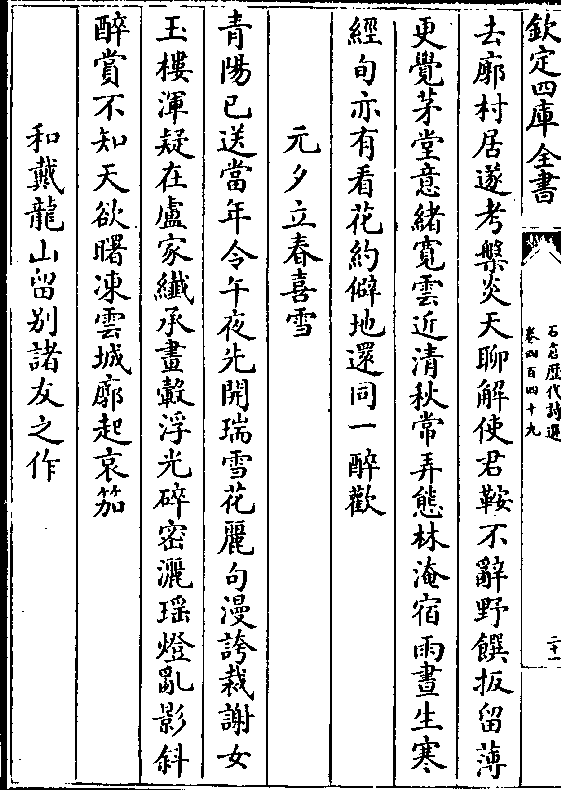 欽定四庫全書
石倉歷代詩選
卷四百四十九
二十一
去廓村居遂考槃炎天聊解使君鞍不辭野饌扳留薄
更覺茅堂意緒寛雲近清秋常弄態林淹宿雨晝生寒
經旬亦有看花約僻地還同一醉歡
元夕立春喜雪
青陽已送當年令午夜先開瑞雪花麗句漫誇裁謝女
玉樓渾疑在盧家纖承畫轂浮光碎密灑瑶燈亂影斜
醉賞不知天欲曙凍雲城廓起哀笳
和戴龍山留别諸友之作